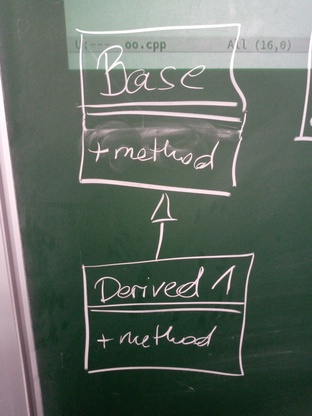 oo.cpp All (16,0)
Base
+method
Derived 1
+method